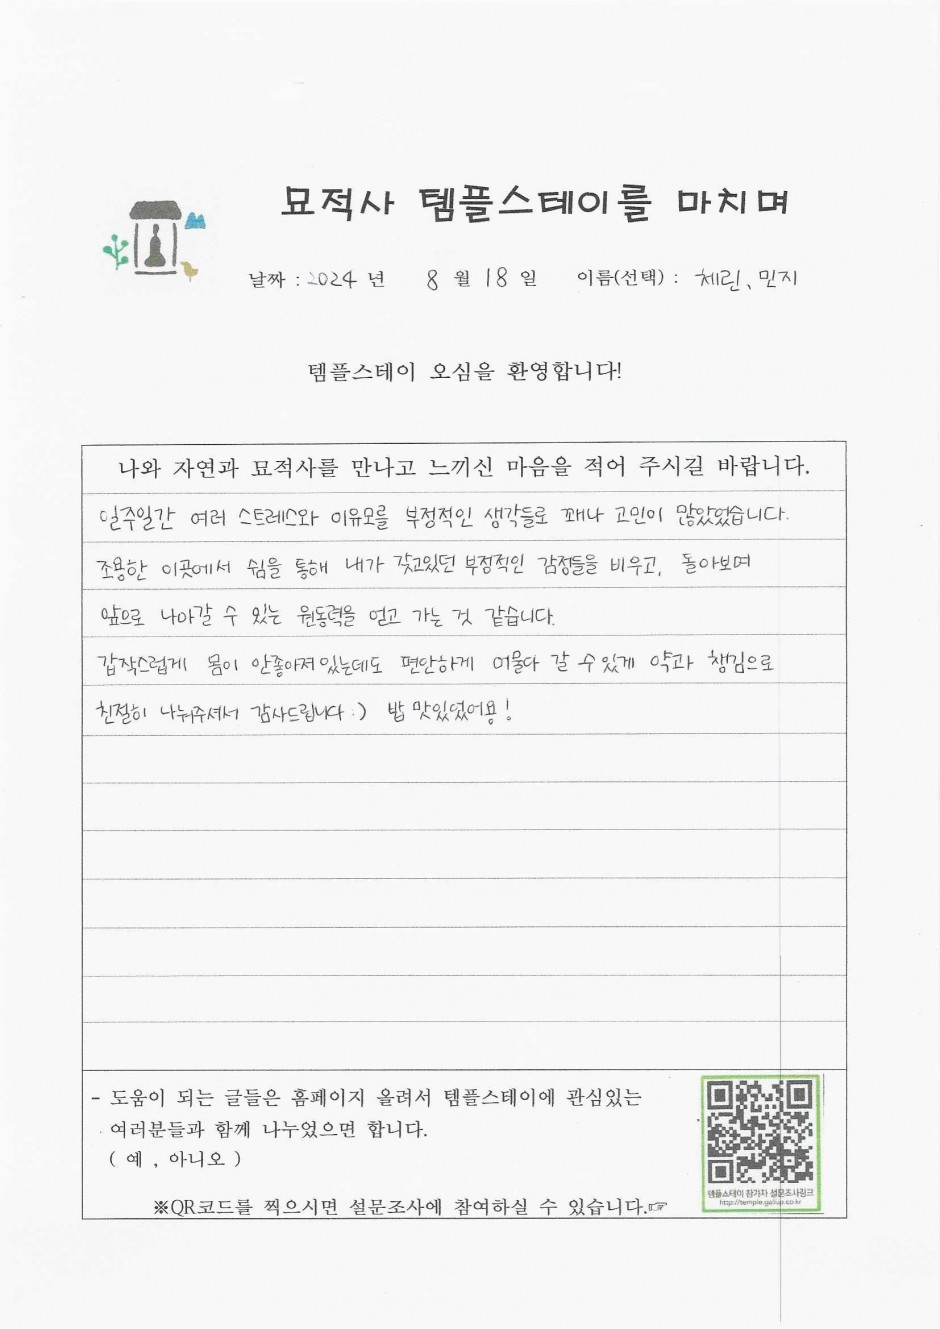 묘적사 템플스테이를 마치며
날짜 : 2024 년 8 월 18 일 이름(선택) : 체린, 민지
템플스테이 오심을 환영합니다!
나와 자연과 묘적사를 만나고 느끼신 마음을 적어 주시길 바랍니다.
일주일간 여러 스트레스와 이유모를 부정적인 생각들로 꽤나 고민이 많았었습니다.
조용한 이곳에서 쉼을 통해 내가 갖고있던 부정적인 감정들을 비우고, 돌아보며
앞으로 나아갈 수 있는 원동력을 얻고 가는 것 같습니다.
갑작스럽게 몸이 안좋아져있는데도 편안하게 머물다 갈 수 있게 약과 챙김으로
친절히 나눠주셔서 감사드립니다 :) 밥 맛있었어용!
- 도움이 되는 글들은 홈페이지 올려서 템플스테이에 관심있는
여러분들과 함께 나누었으면 합니다.
( 예 , 아니오 )
템플스테이 참가자 설문조사링크
http://temple.gallup.co.kr
※QR코드를 찍으시면 설문조사에 참여하실 수 있습니다.☞